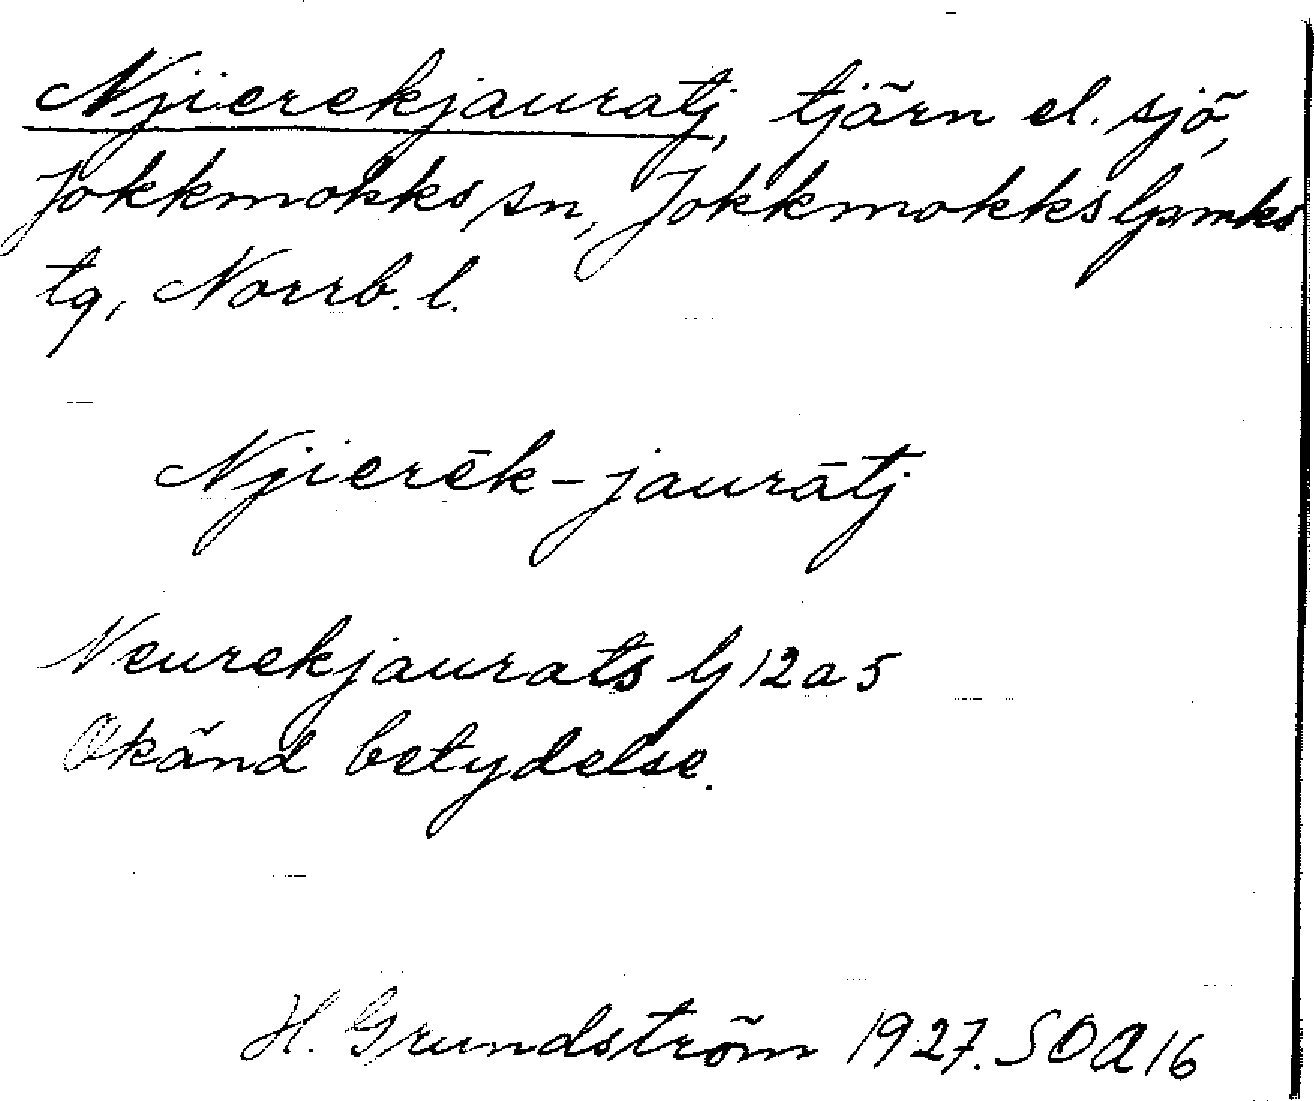 Njierekjauratj, tjärn el. sjö,
Jokkmokks sn, Jokkmokks lpmks
tg, Norrb. l.
Njierēk-jaurātj
Neurekjaurats lj 12 a 5
Okänd betydelse.
H. Grundström 1927. SOA 16